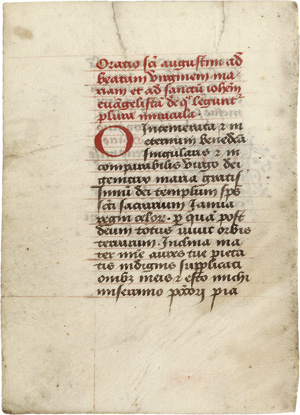 Oratio scī augustini ad
beatam virginem ma-
riam et ad sanctū iohem
euāgelistā de qͥ legunt͛
plura miracula
O Intemerata ⁊ in
eternum benedicta
singularis ⁊ in
comparabilis virgo dei
genitrix maria gratis
simū dei templum spūs
scī sacrarium Ianua
regni celor̄ · p quā post
deum totus viuit orbis
terrarum · Inclina ma
ter mie aures tue pieta
tis indignis supplicati
onibꝫ meis ⁊ esto michi
miserrimo pctōri pia